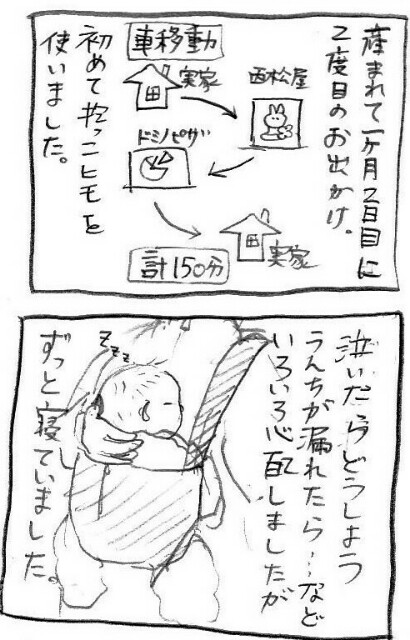 産まれて一ヶ月2日目に
2度目のお出かけ。
車移動
実家
西松屋
ドミノピザ
実家
計150分
初めて抱っこヒモを
使いました。
泣いたらどうしよう
うんちが漏れたら…など
いろいろ心配しましたが
zzz
ずっと寝
ていました。